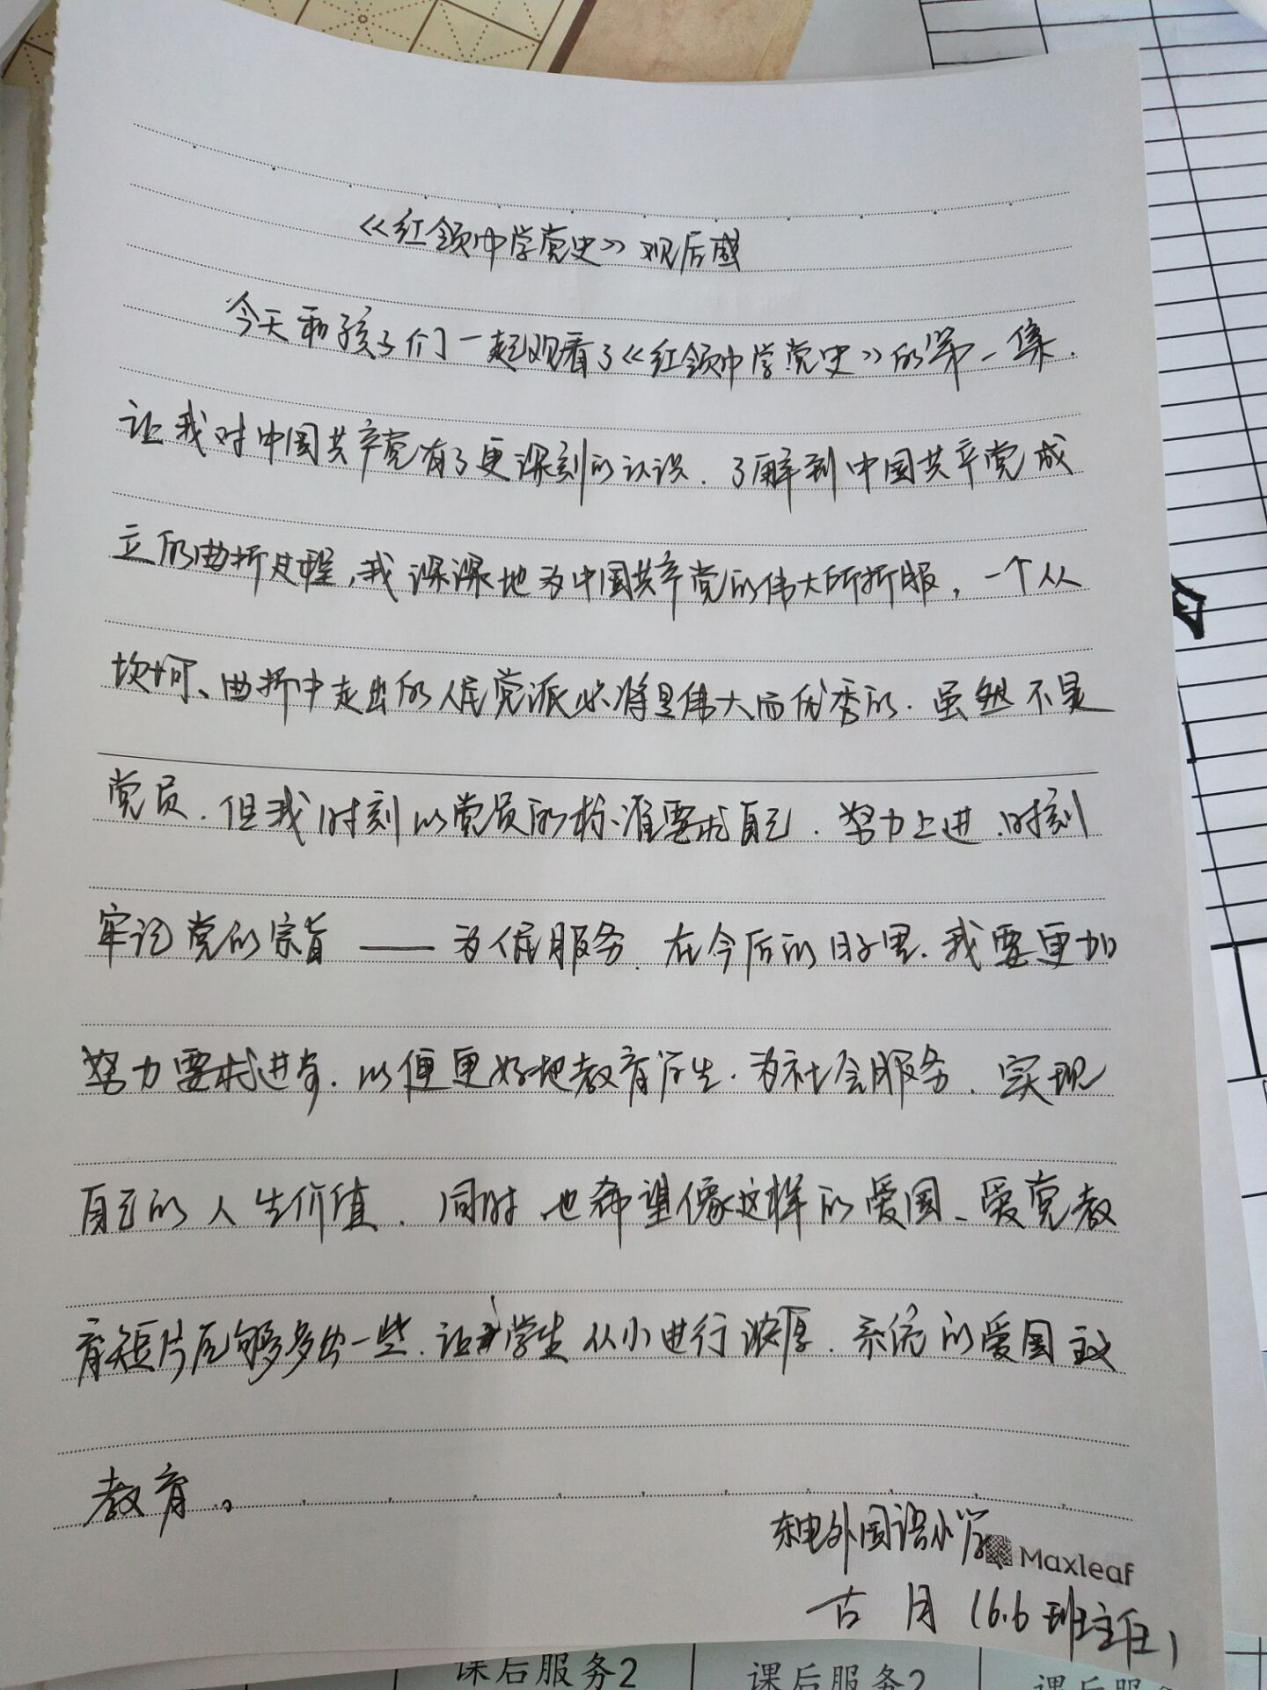 《红领巾学党史》观后感
今天和孩子们一起观看了《红领巾学党史》的第一集.
让我对中国共产党有了更深刻的认识.了解到中国共产党成
立的曲折过程,我深深地为中国共产党的伟大所折服,一个从
坎坷、曲折中走出的人民党派必将是伟大而优秀的.虽然不是
党员.但我时刻以党员的标准要求自己.努力上进.时刻
牢记党的宗旨——为人民服务.在今后的日子里.我要更加
努力要求进步.以便更好地教育学生.为社会服务.实现
自己的人生价值.同时,也希望像这样的爱国、爱党教
育短片能够多出一些.让学生从小进行浓厚.系统的爱国主义
教育。
东电外国语小学
Maxleaf
古月(6.6班主任)
课后服务2
课后服务2
课后服